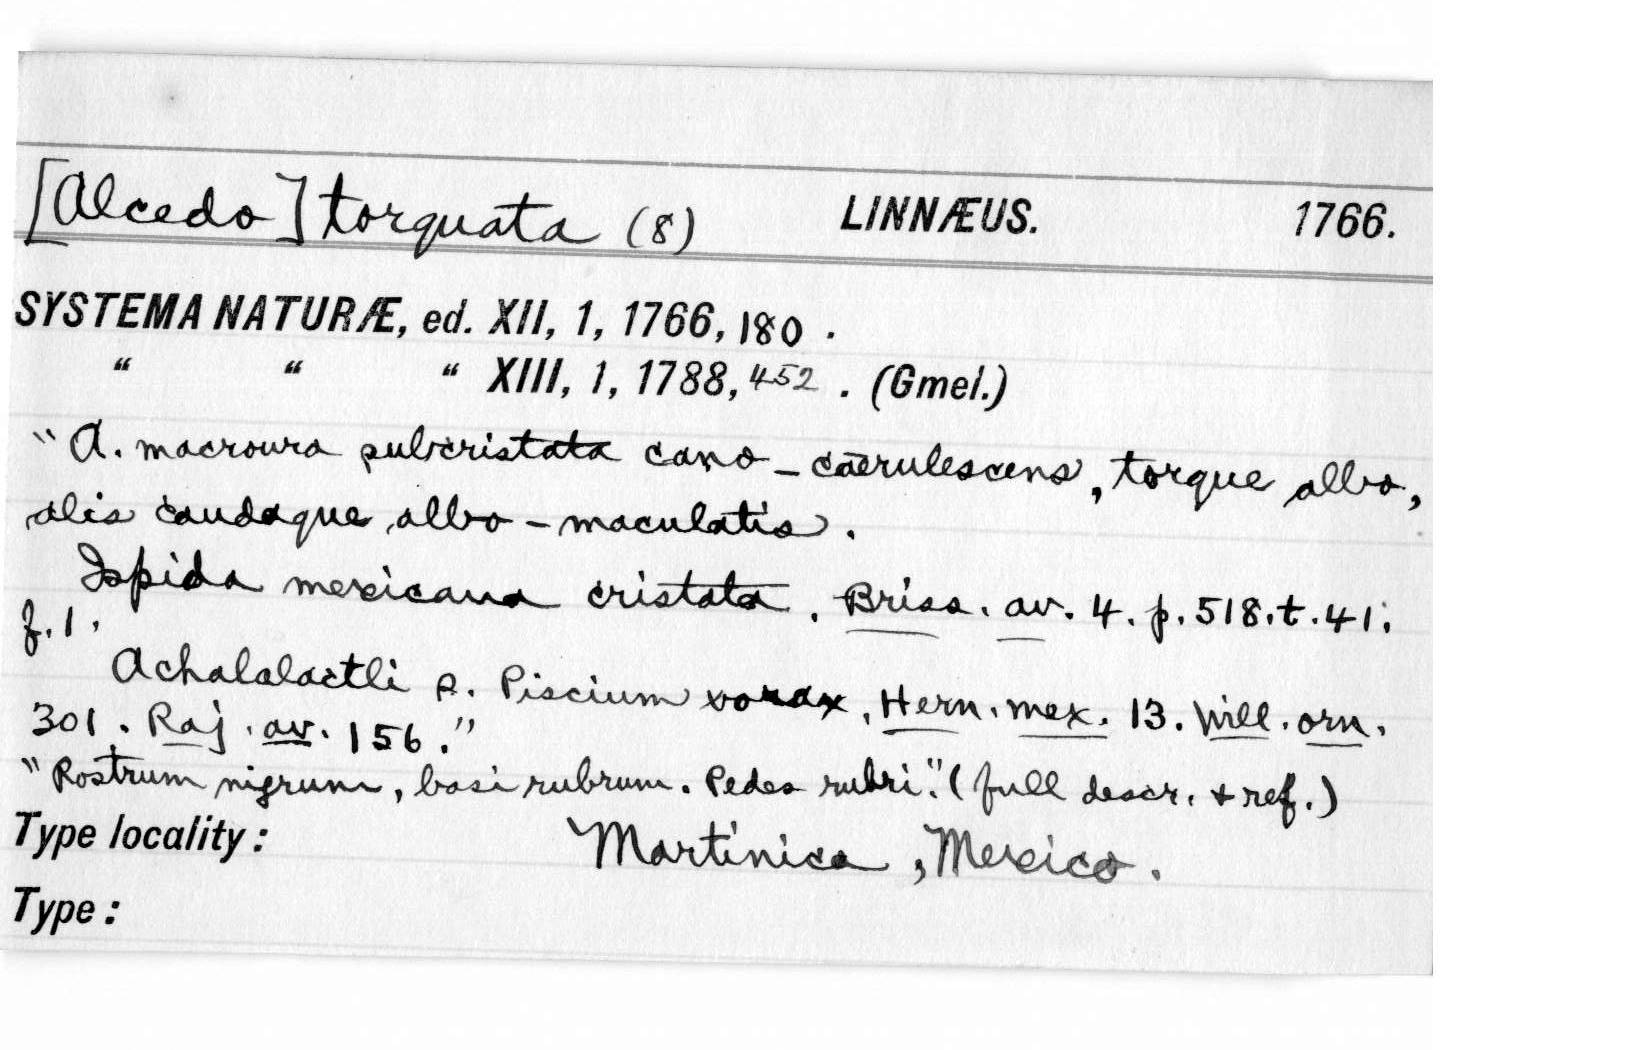 [Alcedo] torquata (8) LINNÆUS. 1766.
SYSTEMA NATURÆ, ed. XII, 1, 1766, 180 .
“ “ “ XIII, 1, 1788, 452 . (Gmel.)
"A. macroura subcristata cano-caerulescens, torque albo,
alis caudaque albo-maculatis.
Ispida mexicana cristata. Briss. av. 4. p. 518. t. 41.
f. 1.
Achalalactli s. Piscium vorax, Hern. mex. 13. Will. orn.
301. Raj. av. 156."
"Rostrum nigrum, basi rubrum. Pedes rubri." (full descr. + ref.)
Type locality: Martinica, Mexico.
Type: